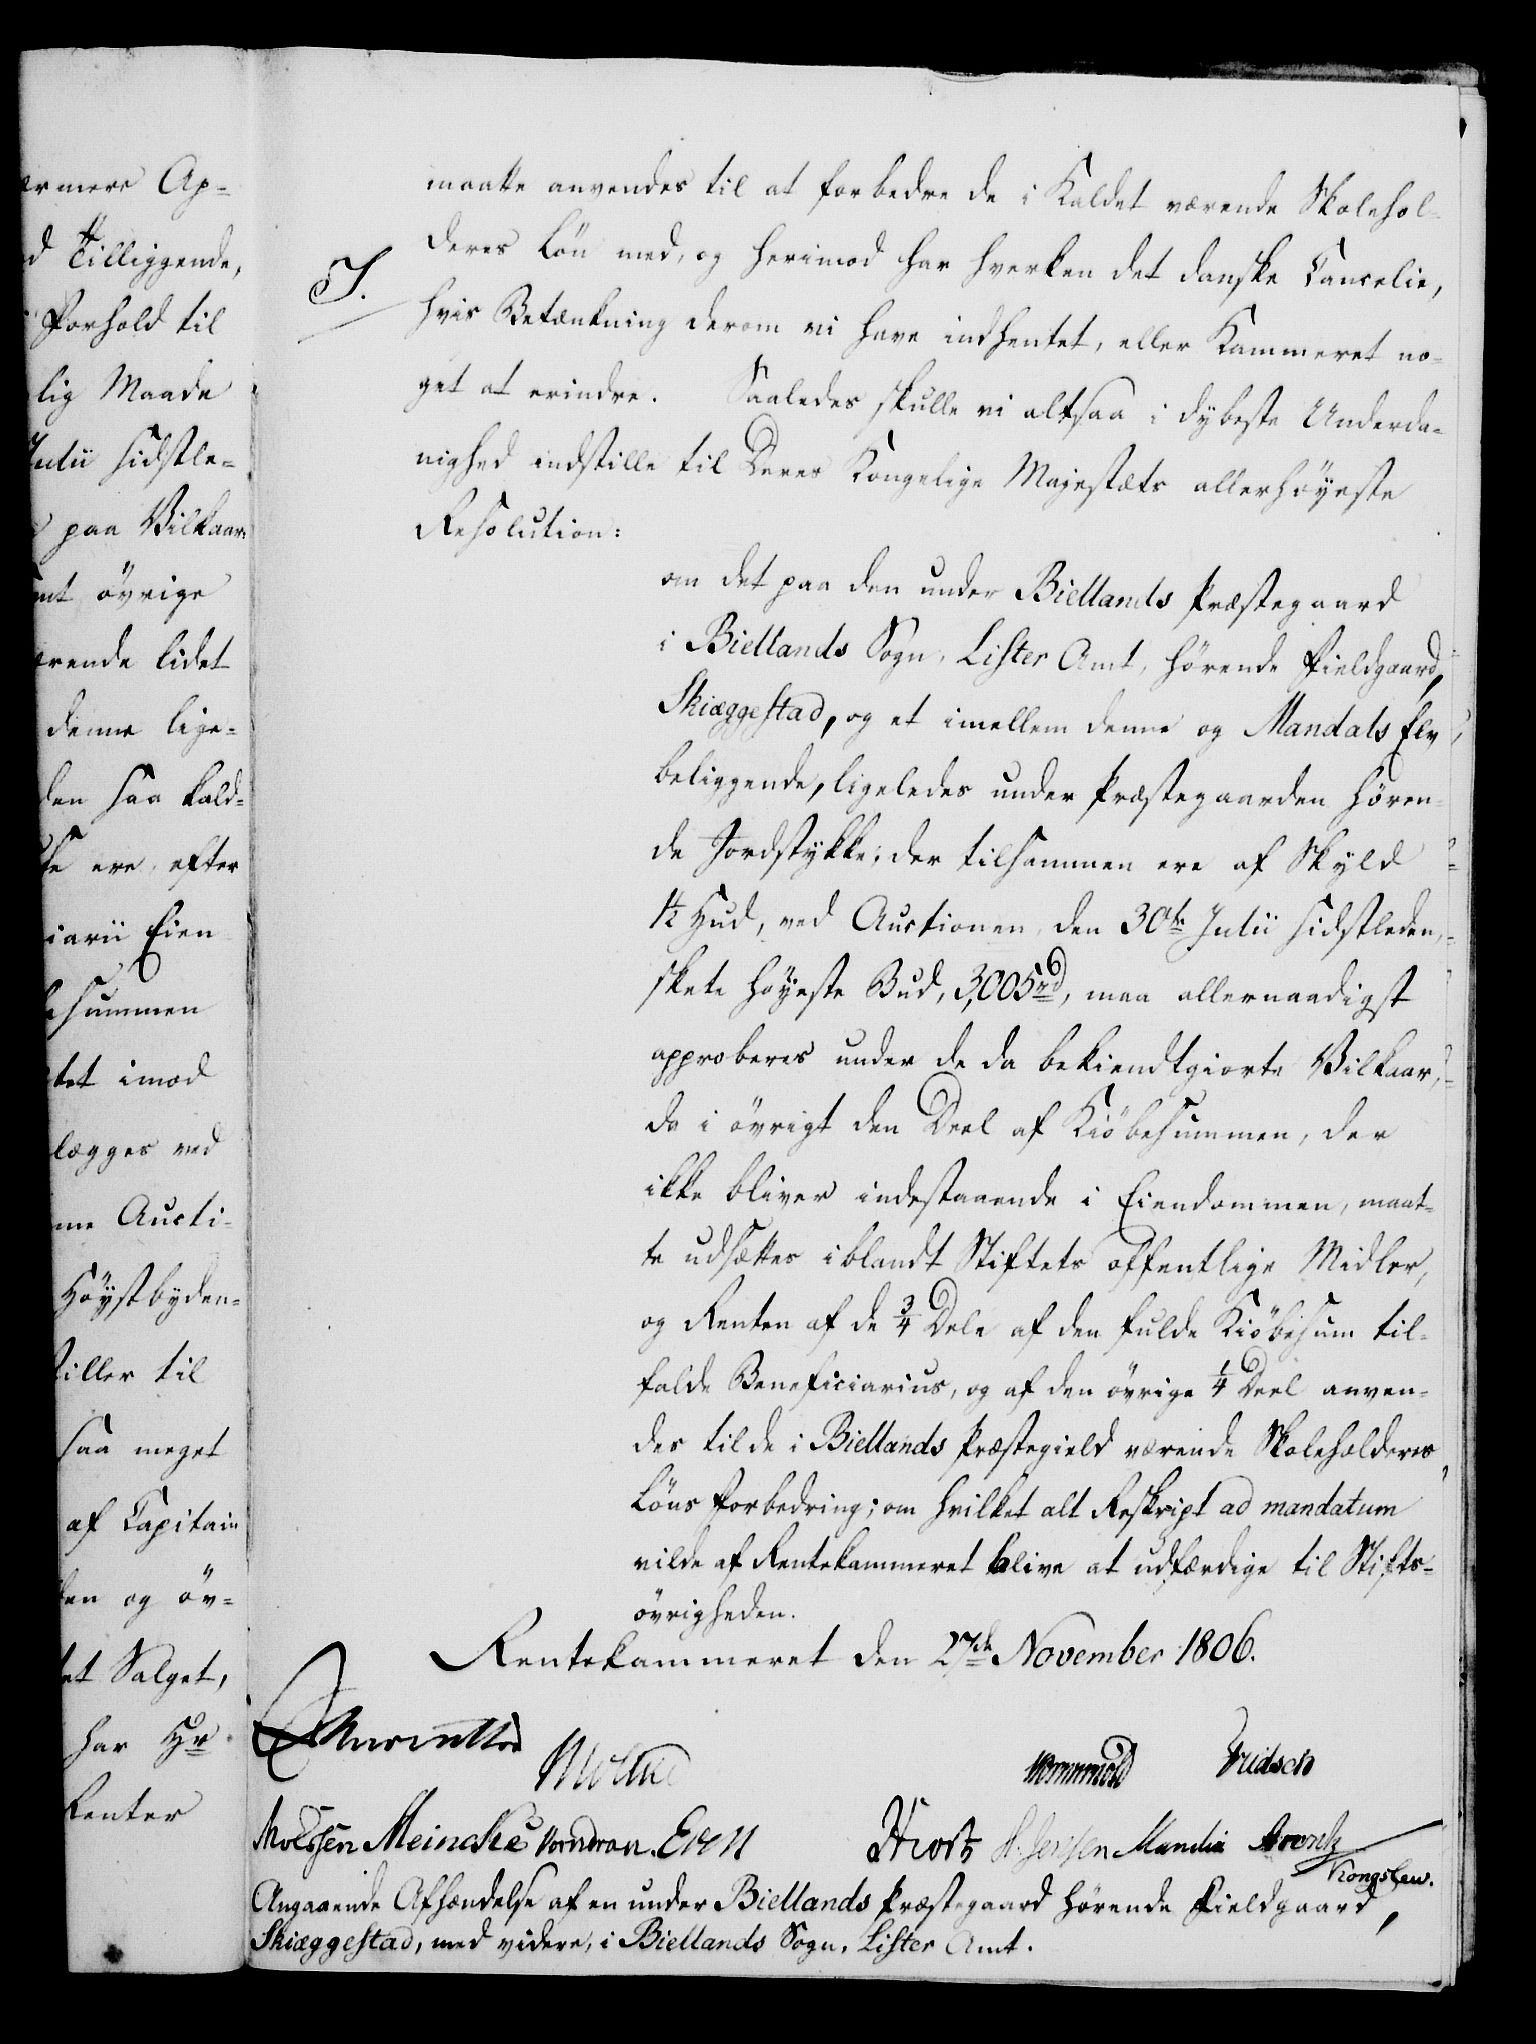 ermere Ap-
d Tilliggende,
Forhold til
lig Maade
Julii sidstle-
paa Vilkaar,
mt övrige
erende lidet
denne lige-
den saa kald-
ere, efter
iarii Eien
esummen
tet imod
lægges ved
ne Aucti-
Höystbyden-
tiller til
saa meget
af Capitain
en og öv-
et Salget,
har Hr
Renter
maatte anvendes til at forbedre de i Kaldet værende Skolehol-
deres Lön med, og herimod har hverken det danske Cancelie,
J.
hvis Betænkning derom vi have indhentet, eller Kammeret no-
get at erindre. Saaledes skulle vi altsaa i dybeste Underda-
nighed indstille til Deres Kongelige Majestæts allerhöyeste
Resolution:
om det paa den under Biellands Præstegaard
i Biellands Sogn, Lister Amt, hörende Fieldgaard,
Skiæggestad, og et imellem denne og Mandals Elv
beliggende, ligeledes under Præstegaarden hören-
de Jordstykke, der tilsammen ere af Skyld
1/2 Hud, ved Auctionen den 30te Julii sidstleden,
skete höyeste Bud, 3,005 rd, maa allernaadigst
approberes under de da bekiendtgiorte Vilkaar,
da i övrigt den Deel af Kiöbesummen, der
ikke bliver indestaaende i Eiendommen, maat-
te udsættes iblandt Stiftets offentlige Midler,
og Renten af de 3/4 Dele af den fulde Kiöbesum til-
falde Beneficiarius, og af den övrige 1/4 Deel anven-
des til de i Biellands Præstegield værende Skoleholderes
Löns Forbedring; om hvilket alt Reskript ad mandatum
vilde af Rentekammeret blive at udfærdige til Stifts-
övrigheden.
Rentekammeret den 27de November 1806.
Wormskiold
Knudsen
Meincke Vorndran. Eren
Hiort H. Jensen Manthei
Kongslew.
Angaaende Afhændelse af en under Biellands Præstegaard hörende Fieldgaard,
Skiæggestad, med videre, i Biellands Sogn, Lister Amt.